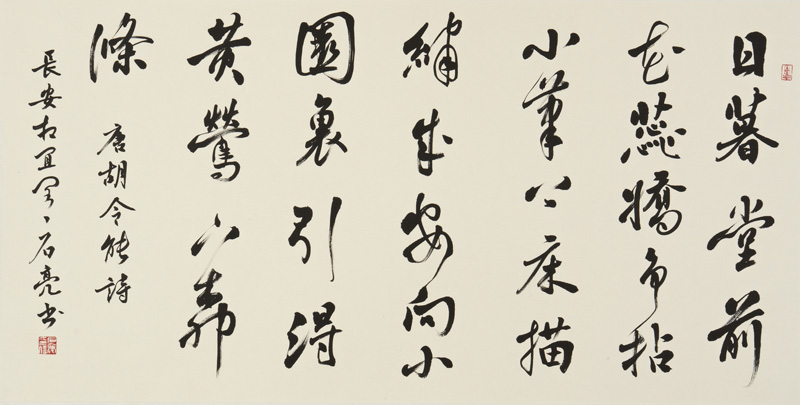 日暮堂前
花蕊嬌争拈
小筆上床描
繡成安向小
園裏引得
黃鶯下柳
條
唐胡令能詩
長安相宜閣石亮书